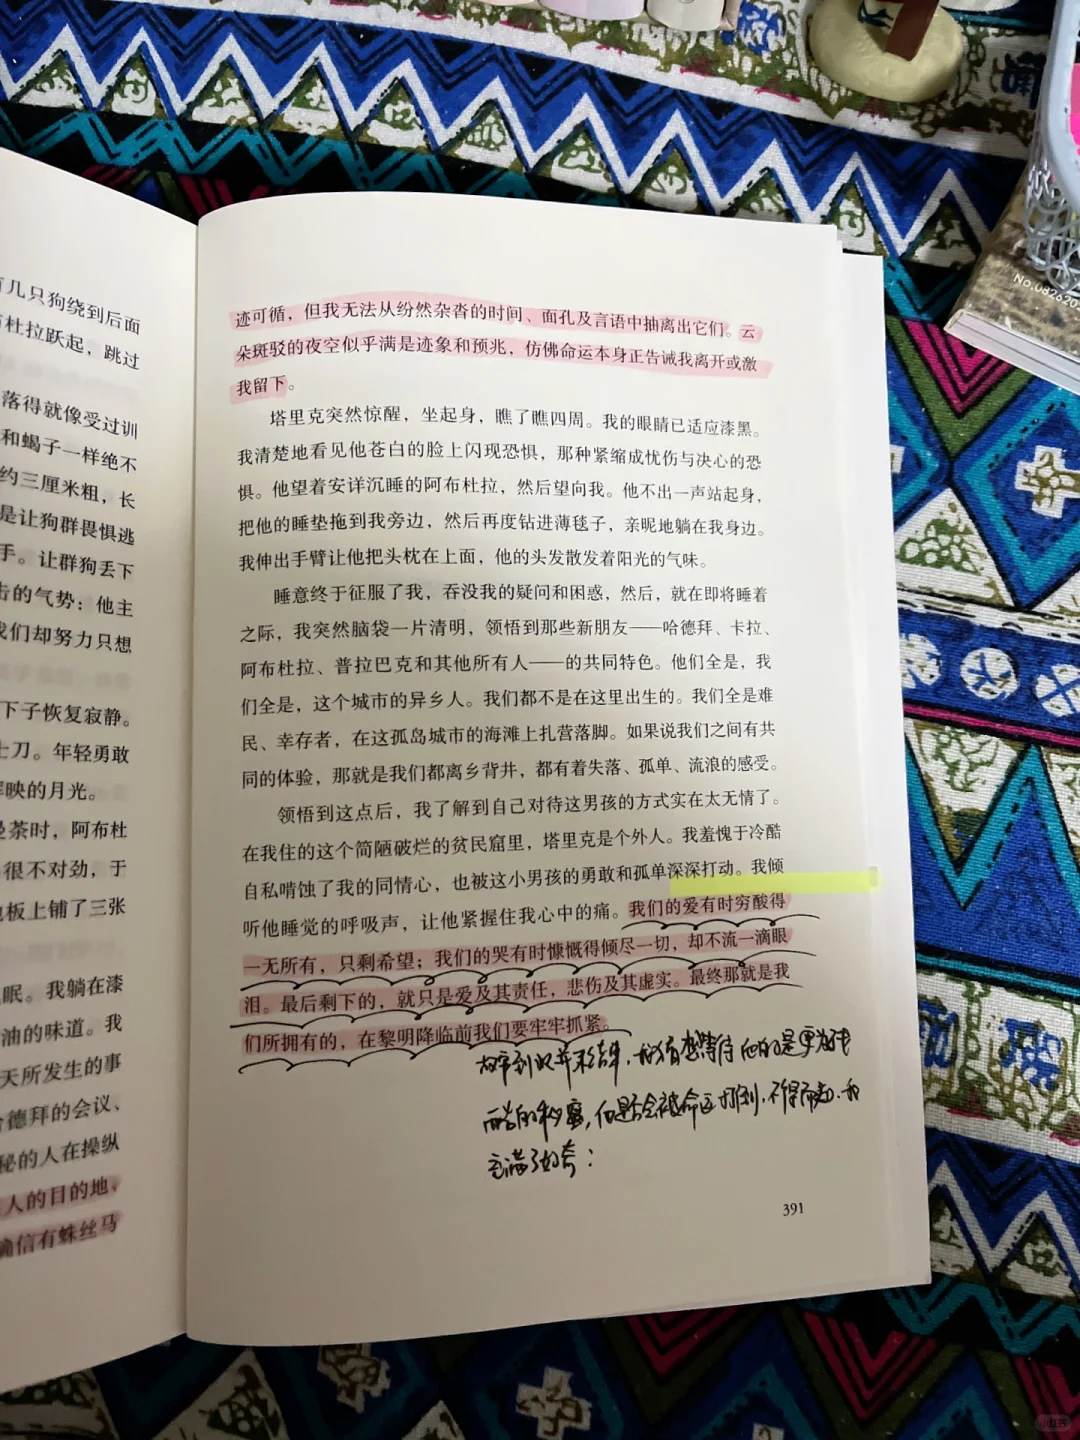 有几只狗绕到后面
布杜拉跃起，跳过
落得就像受过训
和蝎子一样绝不
约三厘米粗，长
是让狗群畏惧逃
手。让群狗丢下
击的气势：他主
我们却努力只想
下子恢复寂静。
刀。年轻勇敢
映的月光。
茶时，阿布杜
很不对劲，于
地板上铺了三张
眠。我躺在漆
油的味道。我
天所发生的事
哈德拜的会议、
秘的人在操纵
人的目的地，
确信有蛛丝马
迹可循，但我无法从纷然杂沓的时间、面孔及言语中抽离出它们。云
朵斑驳的夜空似乎满是迹象和预兆，仿佛命运本身正告诫我离开或激
我留下。
塔里克突然惊醒，坐起身，瞧了瞧四周。我的眼睛已适应漆黑。
我清楚地看见他苍白的脸上闪现恐惧，那种紧缩成忧伤与决心的恐
惧。他望着安详沉睡的阿布杜拉，然后望向我。他不出一声站起身，
把他的睡垫拖到我旁边，然后再度钻进薄毯子，亲昵地躺在我身边。
我伸出手臂让他把头枕在上面，他的头发散发着阳光的气味。
睡意终于征服了我，吞没我的疑问和困惑，然后，就在即将睡着
之际，我突然脑袋一片清明，领悟到那些新朋友——哈德拜、卡拉、
阿布杜拉、普拉巴克和其他所有人——的共同特色。他们全是，我
们全是，这个城市的异乡人。我们都不是在这里出生的。我们全是难
民、幸存者，在这孤岛城市的海滩上扎营落脚。如果说我们之间有共
同的体验，那就是我们都离乡背井，都有着失落、孤单、流浪的感受。
领悟到这点后，我了解到自己对待这男孩的方式实在太无情了。
在我住的这个简陋破烂的贫民窟里，塔里克是个外人。我羞愧于冷酷
自私啃蚀了我的同情心，也被这小男孩的勇敢和孤单深深打动。我倾
听他睡觉的呼吸声，让他紧握住我心中的痛。我们的爱有时穷酸得
一无所有，只剩希望；我们的哭有时慷慨得倾尽一切，却不流一滴眼
泪。最后剩下的，就只是爱及其责任，悲伤及其虚实。最终那就是我
们所拥有的，在黎明降临前我们要牢牢抓紧。
故事到此并未结束，
的秘密，但是否会被命运打倒，不得而知，我
充满了好奇：
391
No.082620
小红书